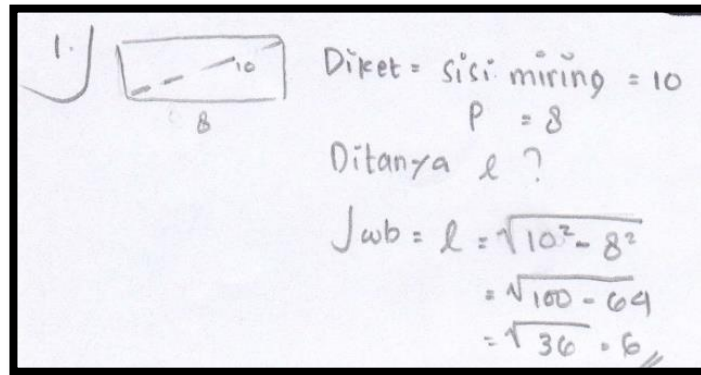 1.
10
8
Diket = sisi miring = 10
P = 8
Ditanya l ?
Jwb = l = √10² - 8²
= √100 - 64
= √36 = 6 //